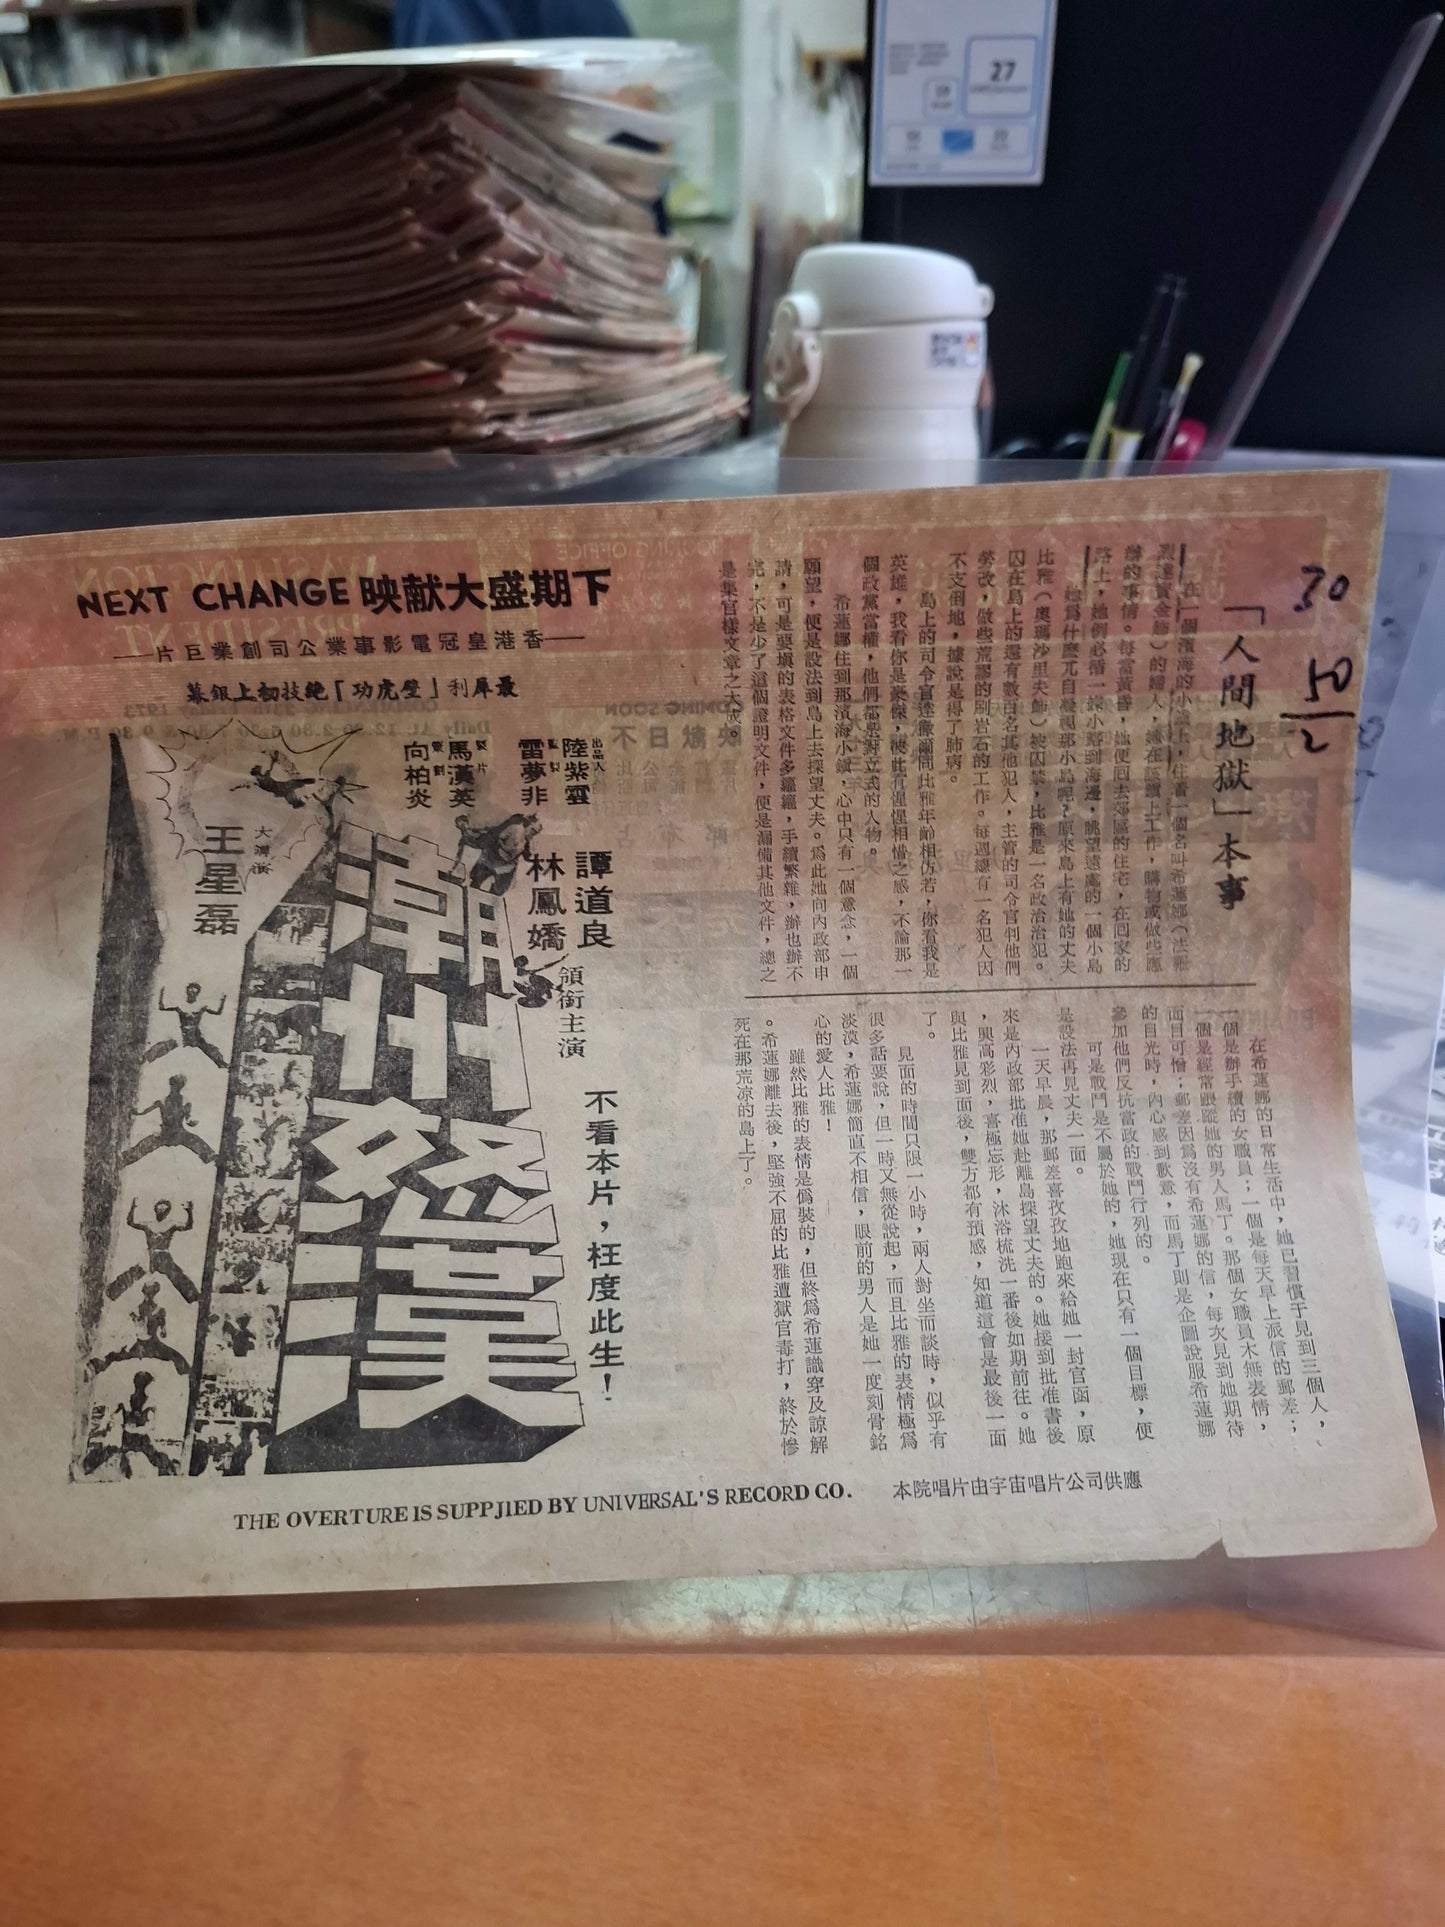 NEXT CHANGE 映献大盛期下
片巨業創司公業事影電冠皇港香
幕銀上初技絶「功虎壁」利犀最
出品人 陸紫雲
監製 雷夢非
製片 馬漢英
策劃 向柏炎
譚道良
林鳳嬌
領銜主演
大潭演
王星磊
潮州怒漢
不看本片，枉度此生！
30
50
2
「人間地獄」本事
在一個濱海的小鎮上，住着一個名叫希蓮娜（法
達黃金飾）的婦人，她在該鎮上工作，購物或做些應
辦的事情。每當黃昏，她便回去郊區的住宅，在回家的
路上，她例必循一條小路到海邊，眺望遠處的一個小島
她爲什麼兀自凝視那小島呢？原來島上有她的丈夫
比雅（奧瑪沙里夫飾）被囚禁，比雅是一名政治治犯。
囚在島上的還有數百名其他犯人，主管的司令官判他們
勞改，做些荒謬的刷岩石的工作。每週總有一名犯人因
不支倒地，據說是得了肺病。
島上的司令官達像爾同比雅年齡相仿若，你看我是
英雄，我看你是豪傑，彼此有惺惺相惜之感，不論那一
個政黨當權，他們都是對立式的人物。
希蓮娜住到那濱海小鎮，心中只有一個意念，一個
願望，便是設法到島上去探望丈夫。爲此她向內政部申
請，可是要填的表格文件多籮籮，手續繁雜，辦也辦不
完，不是少了這個證明文件，便是漏備其他文件，總之
是集官樣文章之大成。
在希蓮娜的日常生活中，她已習慣于見到三個人，
一個是辦手續的女職員；一個是每天早上派信的郵差；
一個是經常跟蹤她的男人馬丁。那個女職員木無表情，
面目可憎；郵差因爲沒有希蓮娜的信，每次見到她期待
的目光時，內心感到歉意，而馬丁則是企圖說服希蓮娜
參加他們反抗當政的戰鬥行列的。
可是戰鬥是不屬於她的，她現在只有一個目標，便
是設法再見丈夫一面。
一天早晨，那郵差喜孜孜地跑來給她一封官函，原
來是內政部批准她赴離島探望丈夫的。她接到批准書後
，興高彩烈，喜極忘形，沐浴梳洗一番後如期前往。她
與比雅見到面後，雙方都有預感，知道這會是最後一面
了。
見面的時間只限一小時，兩人對坐而談時，似乎有
很多話要說，但一時又無從說起，而且比雅的表情極爲
淡漠，希蓮娜簡直不相信，眼前的男人是她一度刻骨銘
心的愛人比雅！
雖然比雅的表情是僞裝的，但終爲希蓮識穿及諒解
。希蓮娜離去後，堅強不屈的比雅遭獄官毒打，終於慘
死在那荒凉的島上了。
THE OVERTURE IS SUPPJIED BY UNIVERSAL'S RECORD CO. 本院唱片由宇宙唱片公司供應
27